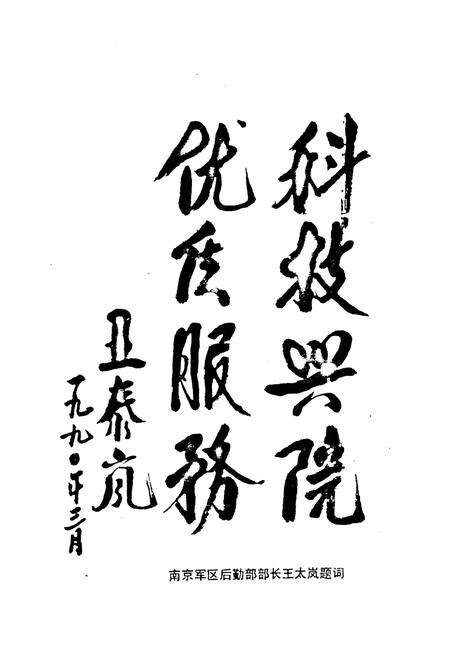 科技兴院
优质服务
王泰岚
一九九〇年三月
南京军区后勤部部长王太岚题词